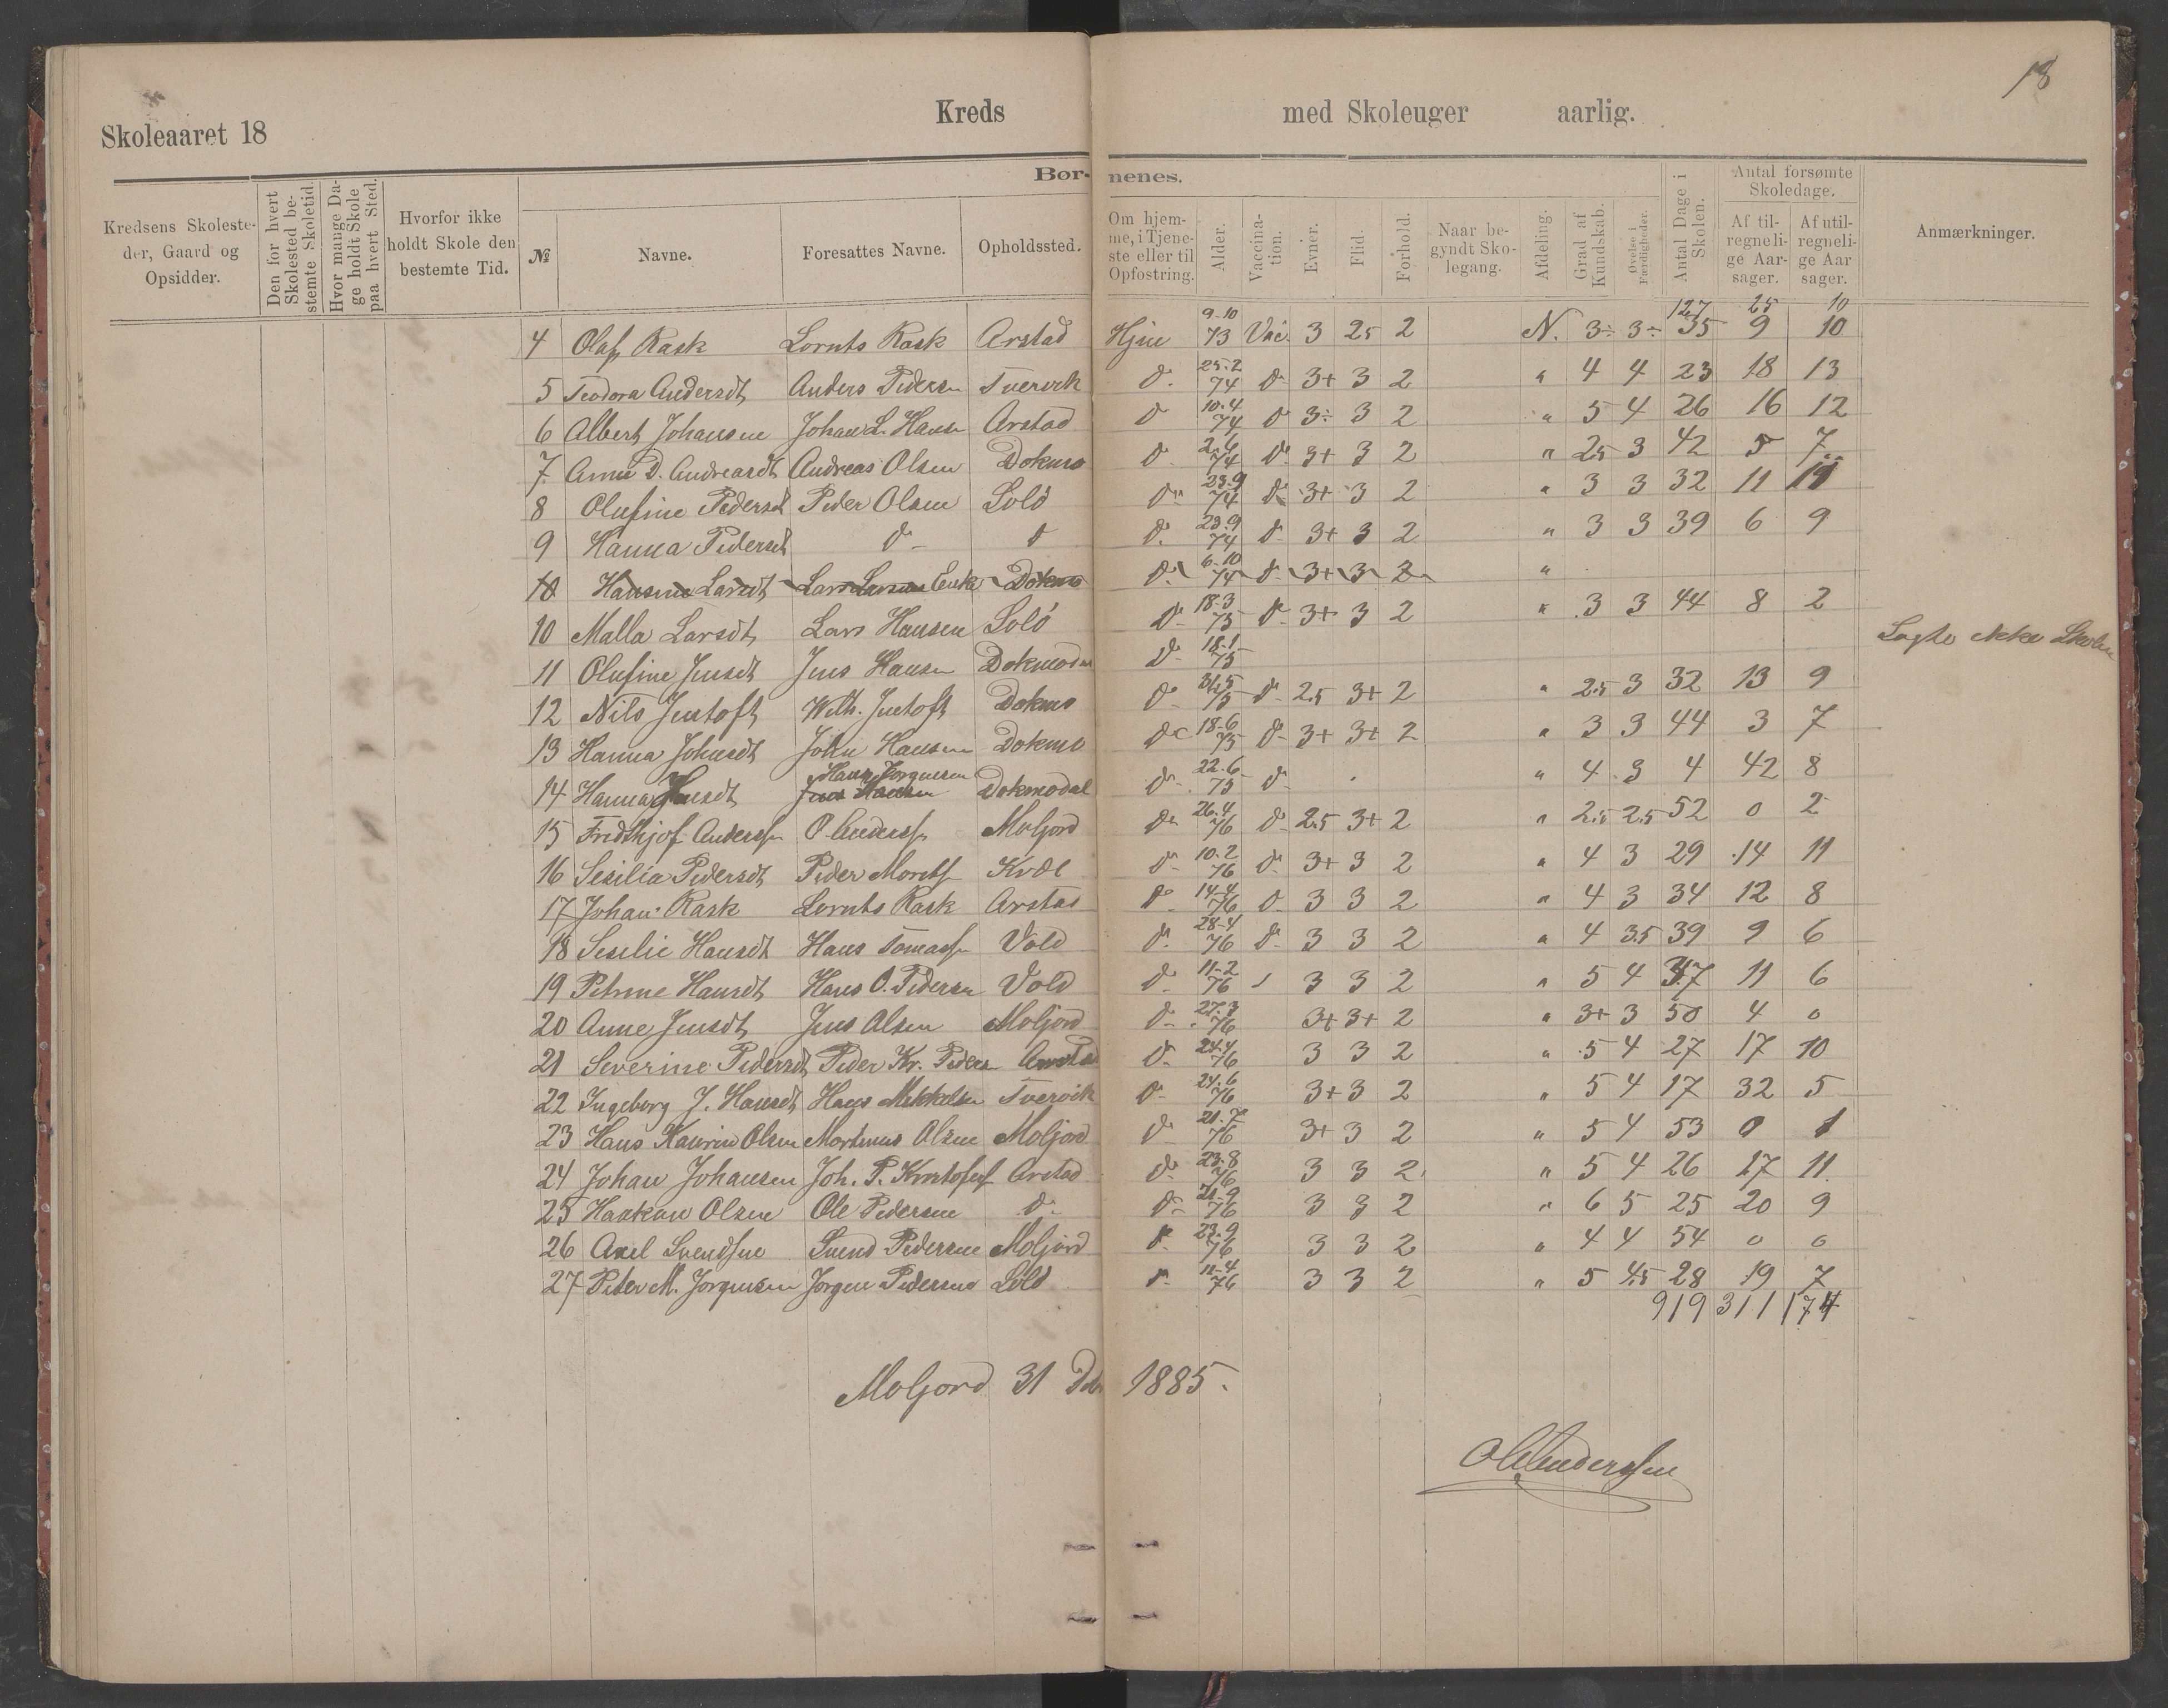 18
Skoleaaret 18 Kreds med Skoleuger aarlig.
Børnenes.
Kredsens Skolesteder, Gaard og Opsidder. Den for hvert Skolested bestemte Skoletid. Hvor mange Dage holdt Skole paa hvert Sted. Hvorfor ikke holdt Skole den bestemte Tid. № Navne. Foresattes Navne. Opholdssted. Om hjemme, i Tjeneste eller til Opfostring. Alder. Vaccination. Evner. Flid. Forhold. Naar begyndt Skolegang. Afdeling. Grad af Kundskab. Øvelse i Færdigheder. Antal Dage i Skolen. Antal forsømte Skoledage. Af tilregnelige Aarsager. Af utilregnelige Aarsager. Anmærkninger.
127 25 10
4 Olaf Rask Lornts Rask Arstad Hjm 9-10 73 Vac. 3 25 2 N. 3÷ 3÷ 35 9 10
5 Teodora Andersdt Anders Pedersn Tvervik d. 25.2 74 d 3+ 3 2 " 4 4 23 18 13
6 Albert Johansen Johan L. Hansn Arstad d 10.4 74 d 3÷ 3 2 " 5 4 26 16 12
7 Anne D. Andreasdt Andreas Olsen Dokmo d 2.6 74 d 3+ 3 2 " 25 3 42 5 7
8 Olufine Pedersdt Peder Olsen Solö d 23.9 74 d 3+ 3 2 " 3 3 32 11 11
9 Hanna Pedersdt d d d. 23.9 74 d 3+ 3 2 " 3 3 39 6 9
10 Hansine Larsdt Lars Larsens Enke Dokmo d. 6-10 74 d 3+ 3 2 "
10 Malla Larsdt Lars Hansen Solö d 18.3 75 d 3+ 3 2 " 3 3 44 8 2
11 Olufine Jensdt Jens Hansn Dokmodal d 18.1 75 Søgte ikke Skolen
12 Nils Jentoft Wilh. Jentoft Dokmo d 31.5 75 d 2.5 3+ 2 " 2.5 3 32 13 9
13 Hanna Johnsdt John Hansen Dokmo d 18-6 75 d 3+ 3+ 2 " 3 3 44 3 7
14 Hanna Hansdt Jens Hansen Hans Jorgensen Dokmodal d 22.6 75 d " 4 3 4 42 8
15 Fridthjof Anderssn O. Anderssn Moljord d 26.4 76 d 2.5 3+ 2 " 2.5 2.5 52 0 2
16 Sesilia Pedersdt Peder Moretsn Kvæl d 10.2 76 d 3+ 3 2 " 4 3 29 14 11
17 Johan Rask Lornts Rask Arstad d 14-4 76 d 3 3 2 " 4 3 34 12 8
18 Seselie Hansdt Hans Tomassn Vold d. 28-4 76 d 3 3 2 " 4 3.5 39 9 6
19 Petrine Hansdt Hans O. Pedersn Vold d 11-2 76 3 3 2 " 5 4 37 11 6
20 Anne Jensdt Jens Olsen Moljord d 27.3 76 3+ 3+ 2 " 3+ 3 50 4 0
21 Severine Pedersdt Peder Kr. Pedersn Arstad d. 24.4 76 3 3 2 " 5 4 27 17 10
22 Ingeborg J. Hansdt Hans Mikkelsn Tvervik d 24.6 76 3+ 3 2 " 5 4 17 32 5
23 Hans Kaurin Olsen Mortinus Olsen Moljord d 21.7 76 3+ 3 2 " 5 4 53 0 1
24 Johan Johansen Joh. P. Kristofers. Arstad d 23.8 76 3 3 2 " 5 4 26 17 11
25 Haakon Olsen Ole Pedersen d d 21.9 76 3 3 2 " 6 5 25 20 9
26 Axel Svendsen Svend Pedersen Moljord d 23.9 76 3 3 2 " 4 4 54 0 0
27 Peter M. Jorgensen Jorgen Pedersen Solö d 12-4 76 3 3 2 " 5 4.5 28 19 7
919 311 174
Moljord 31 Dcb 1885.
O Anderssen